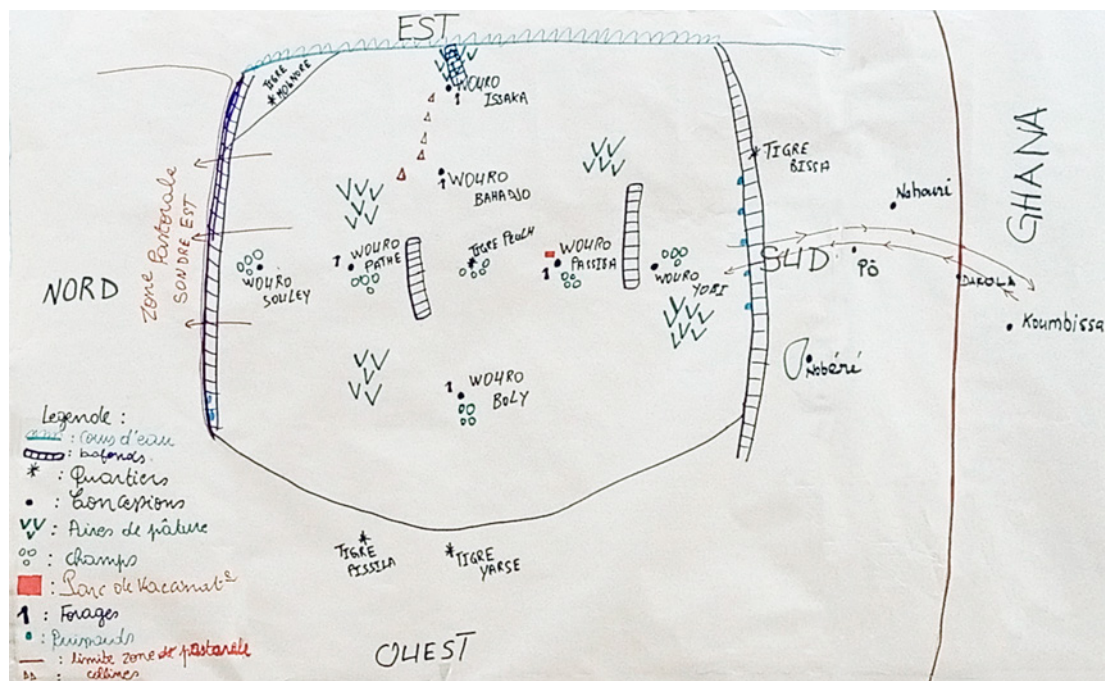 EST
TIGRE
MOGNORE
WOURO
ISSAKA
WOURO
BAHADJO
TIGRE
BISSA
Nahouri
GHANA
NORD
Zone Pastorale
SONDRE EST
WOURO
SOULEY
WOURO
PATHE
TIGRE PEULH
WOURO
PASSIBA
WOURO
YOBI
SUD
Pô
DAKOLA
Koumbissa
Nobéré
WOURO
BOLY
TIGRE
PISSILA
TIGRE
YARSE
OUEST
Legende :
: Cours d'eau
: bafonds
: Quartiers
: Concessions
: Aires de pâture
: champs
: Parc de Vaccinat°
: Forages
: Puisards
: limite zone de pastorale
: collines